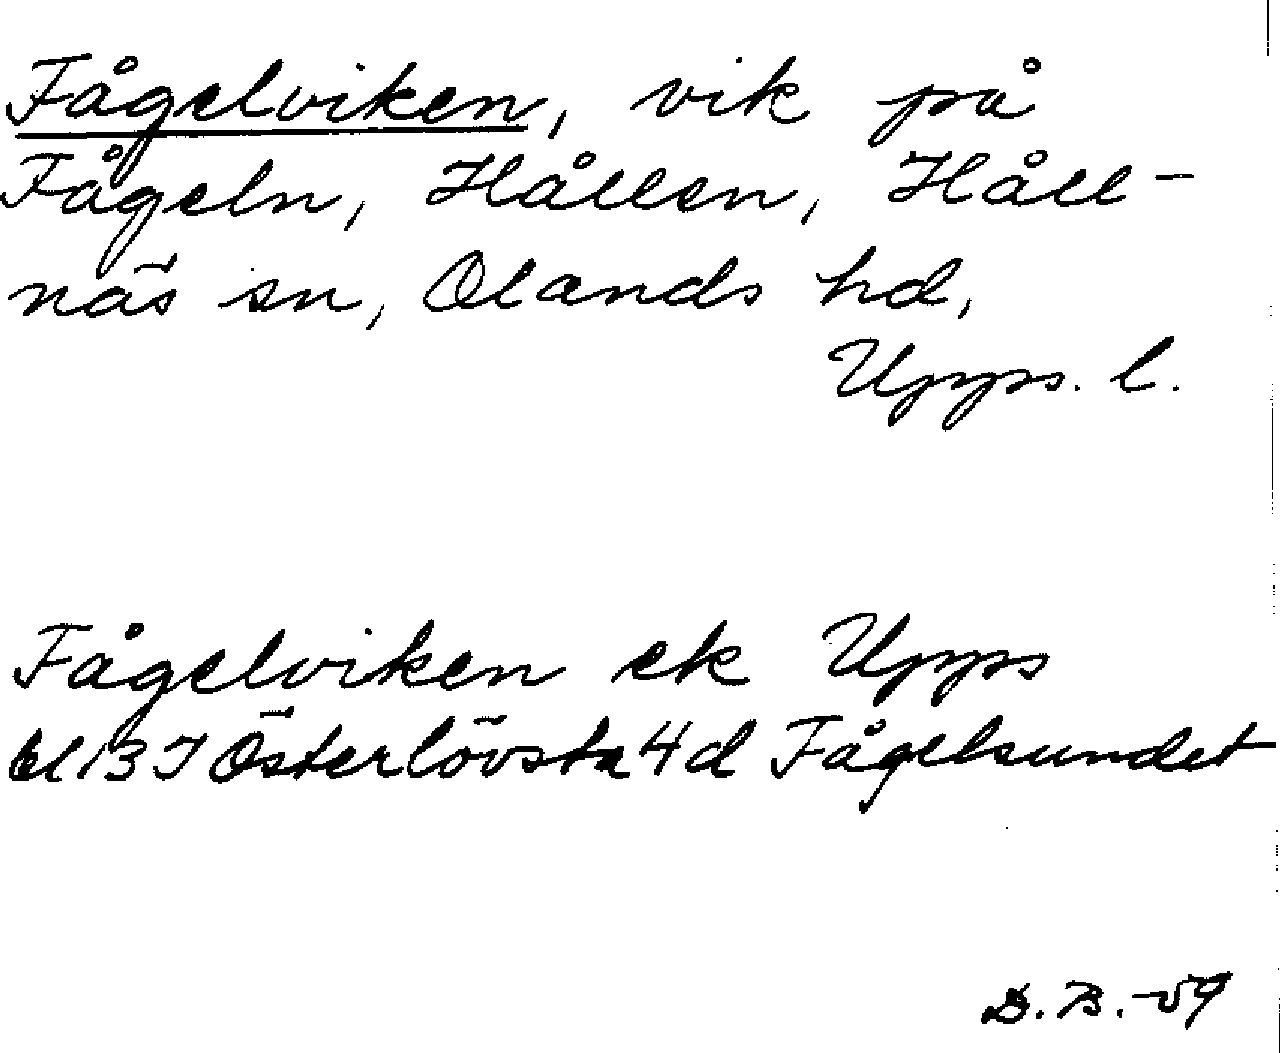 Fågelviken, vik på
Fågeln, Hållen, Håll-
näs sn, Olands hd,
Upps. l.
Fågelviken ek Upps
bl 13I Österlövsta 4d Fågelsundet
D.B.-59